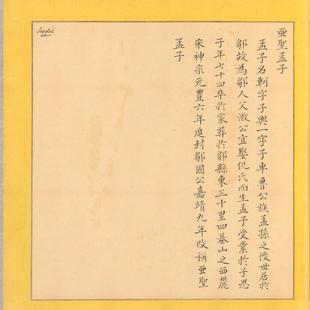 亞聖孟子
孟子名軻字子輿一字子車魯公族孟孫之後世居於
鄒故為鄒人父激公宜娶仉氏而生孟子受業於子思
子年七十四卒於家葬於鄒縣東三十里四基山之西麓
宋神宗元豐六年追封鄒國公嘉靖九年改稱亞聖
孟子